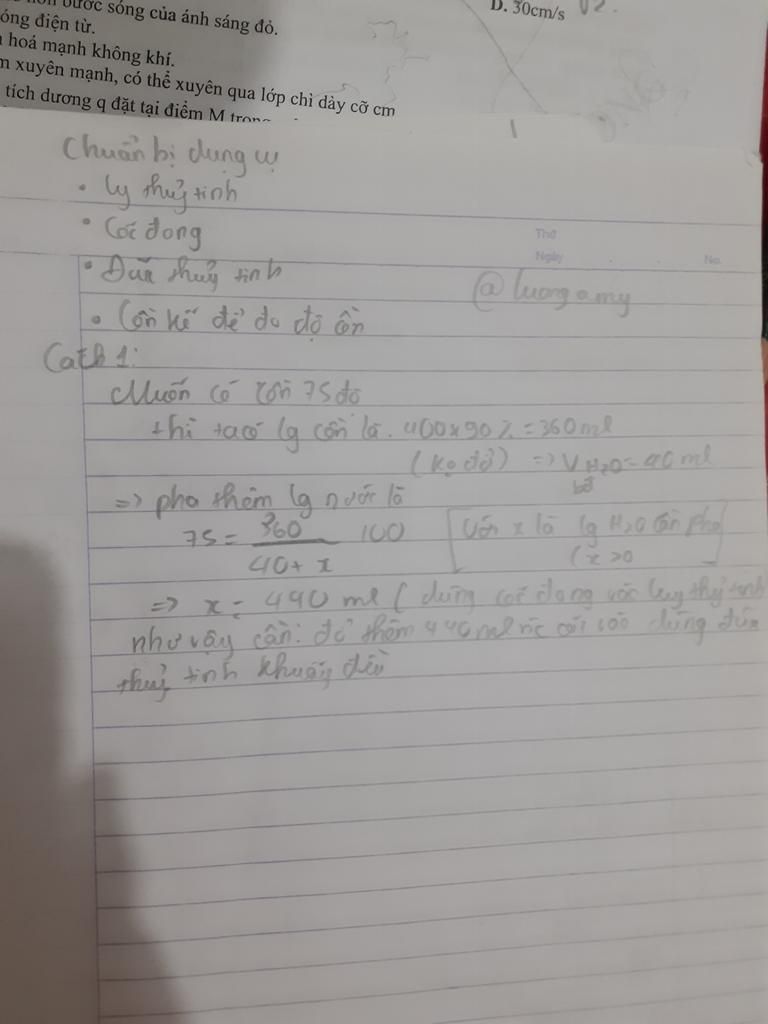 bước sóng của ánh sáng đỏ.
óng điện từ.
hoá mạnh không khí.
xuyên mạnh, có thể xuyên qua lớp chì dày cỡ cm
tích dương q đặt tại điểm M trong
D. 30cm/s
Chuẩn bị dụng cụ
• Ly thuỷ tinh
• Cốc đong
• Đũa thuỷ tinh
• Cồn kế để đo độ cồn
Thứ
Ngày
No.
@luong a my
Cách 1:
Muốn có cồn 75 độ
thì ta có lg cồn là. 400x90% = 360ml
=> V H2O = 40 ml
=> pha thêm lg nước là
75 = 360 / 40 + x 100
[Với x là lg H2O cần pha
(x > 0 ]
=> x = 440 ml ( dùng cốc đong
như vậy cần: đổ thêm 440 ml dùng đũa
thuỷ tinh khuấy đều